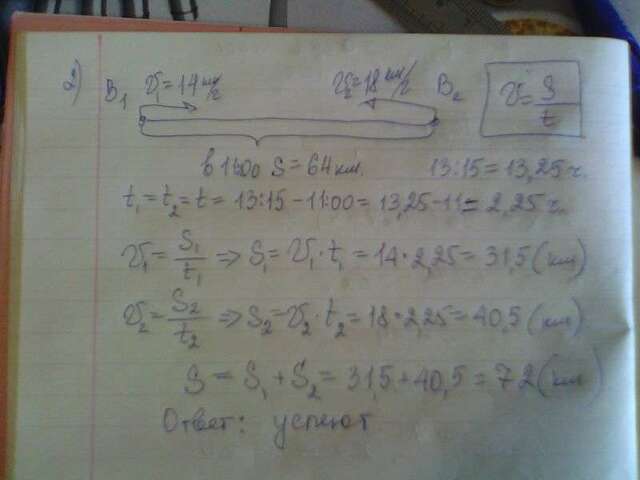 2) B₁ V₁=14 км/ч V₂=18 км/ч B₂ V=S/t
в 11:00 S=64 км. 13:15=13,25 ч.
t₁=t₂=t=13:15-11:00=13,25-11=2,25 ч.
V₁=S₁/t₁ ⇒ S₁=V₁·t₁=14·2,25=31,5 (км)
V₂=S₂/t₂ ⇒ S₂=V₂·t₂=18·2,25=40,5 (км)
S=S₁+S₂=31,5+40,5=72 (км)
Ответ: успеют